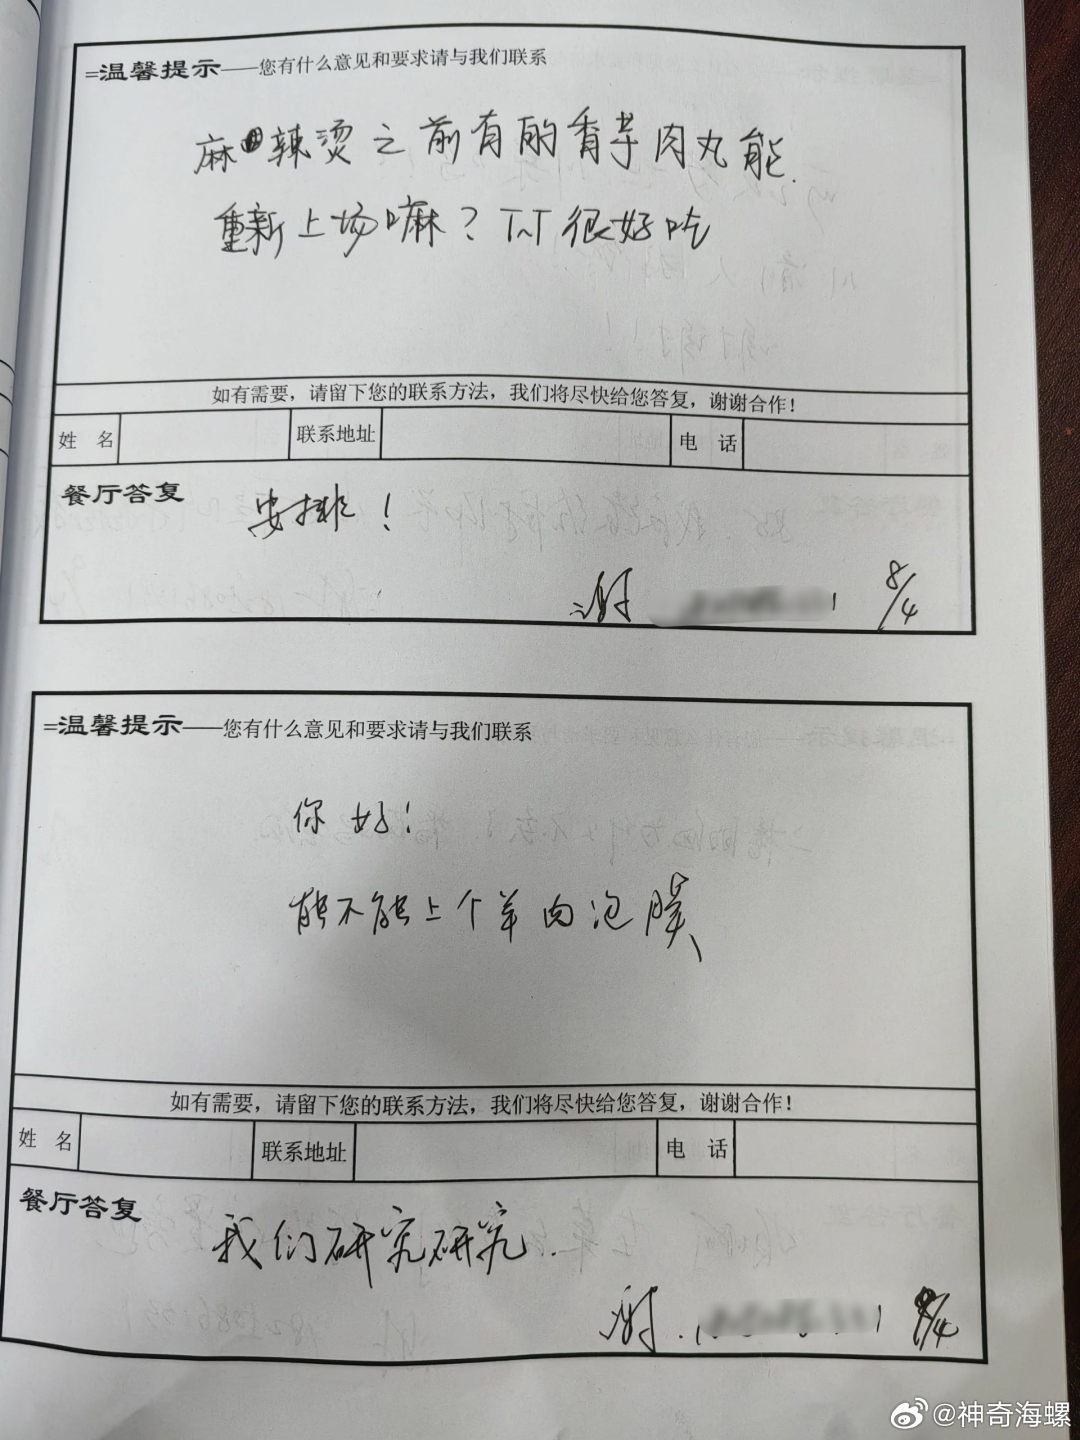 =温馨提示——您有什么意见和要求请与我们联系
麻辣烫之前有的香芋肉丸能
重新上场嘛？TAT 很好吃
如有需要，请留下您的联系方法，我们将尽快给您答复，谢谢合作！
姓 名 联系地址 电 话
餐厅答复
安排！
谢 8/4
=温馨提示——您有什么意见和要求请与我们联系
你好！
能不能上个羊肉泡膜
如有需要，请留下您的联系方法，我们将尽快给您答复，谢谢合作！
姓 名 联系地址 电 话
餐厅答复
我们研究研究.
谢. 8/4
@神奇海螺